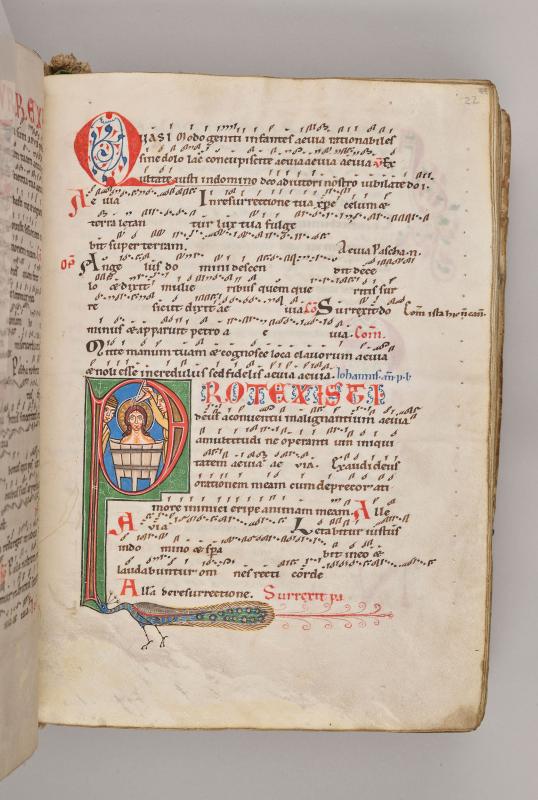 22
QUASI Modo geniti infantes aeuia rationabiles
sine dolo lac concupiscite aeuia aeuia aeuia. Ex
ultate
iusti in domino deo adiutori nostro iubilate do i.
A e uia In resurrectione tua xpe celum &
terra letan tur lux tua fulge
bit super terram. Aeuia Pascha n.
Of Ange lus do mini descen dit de ce
lo & dixit mulie ribus quem que ritis sur
re xit sicut dixit ae uia. Co Surrexit do
minus & apparuit petro a e uia. Com.
Mitte manum tuam & cognosce loca clauorum aeuia
& noli esse incredulus sed fidelis aeuia aeuia. Johannis
PROTEXISTI
deus a conuentu malignantium aeuia
a multitudi ne operanti um iniqui
tatem aeuia ae uia. Exaudi deus
orationem meam cum deprecor a ti
more inimici eripe animam meam. Alle
A uia Letabitur iustus
in do mino & spa bit in eo &
laudabuntur om nes recti corde
Alla de resurrectione. Surrexit pa